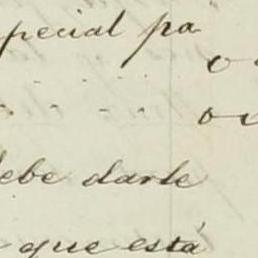 pecial pa
debe darle
que está